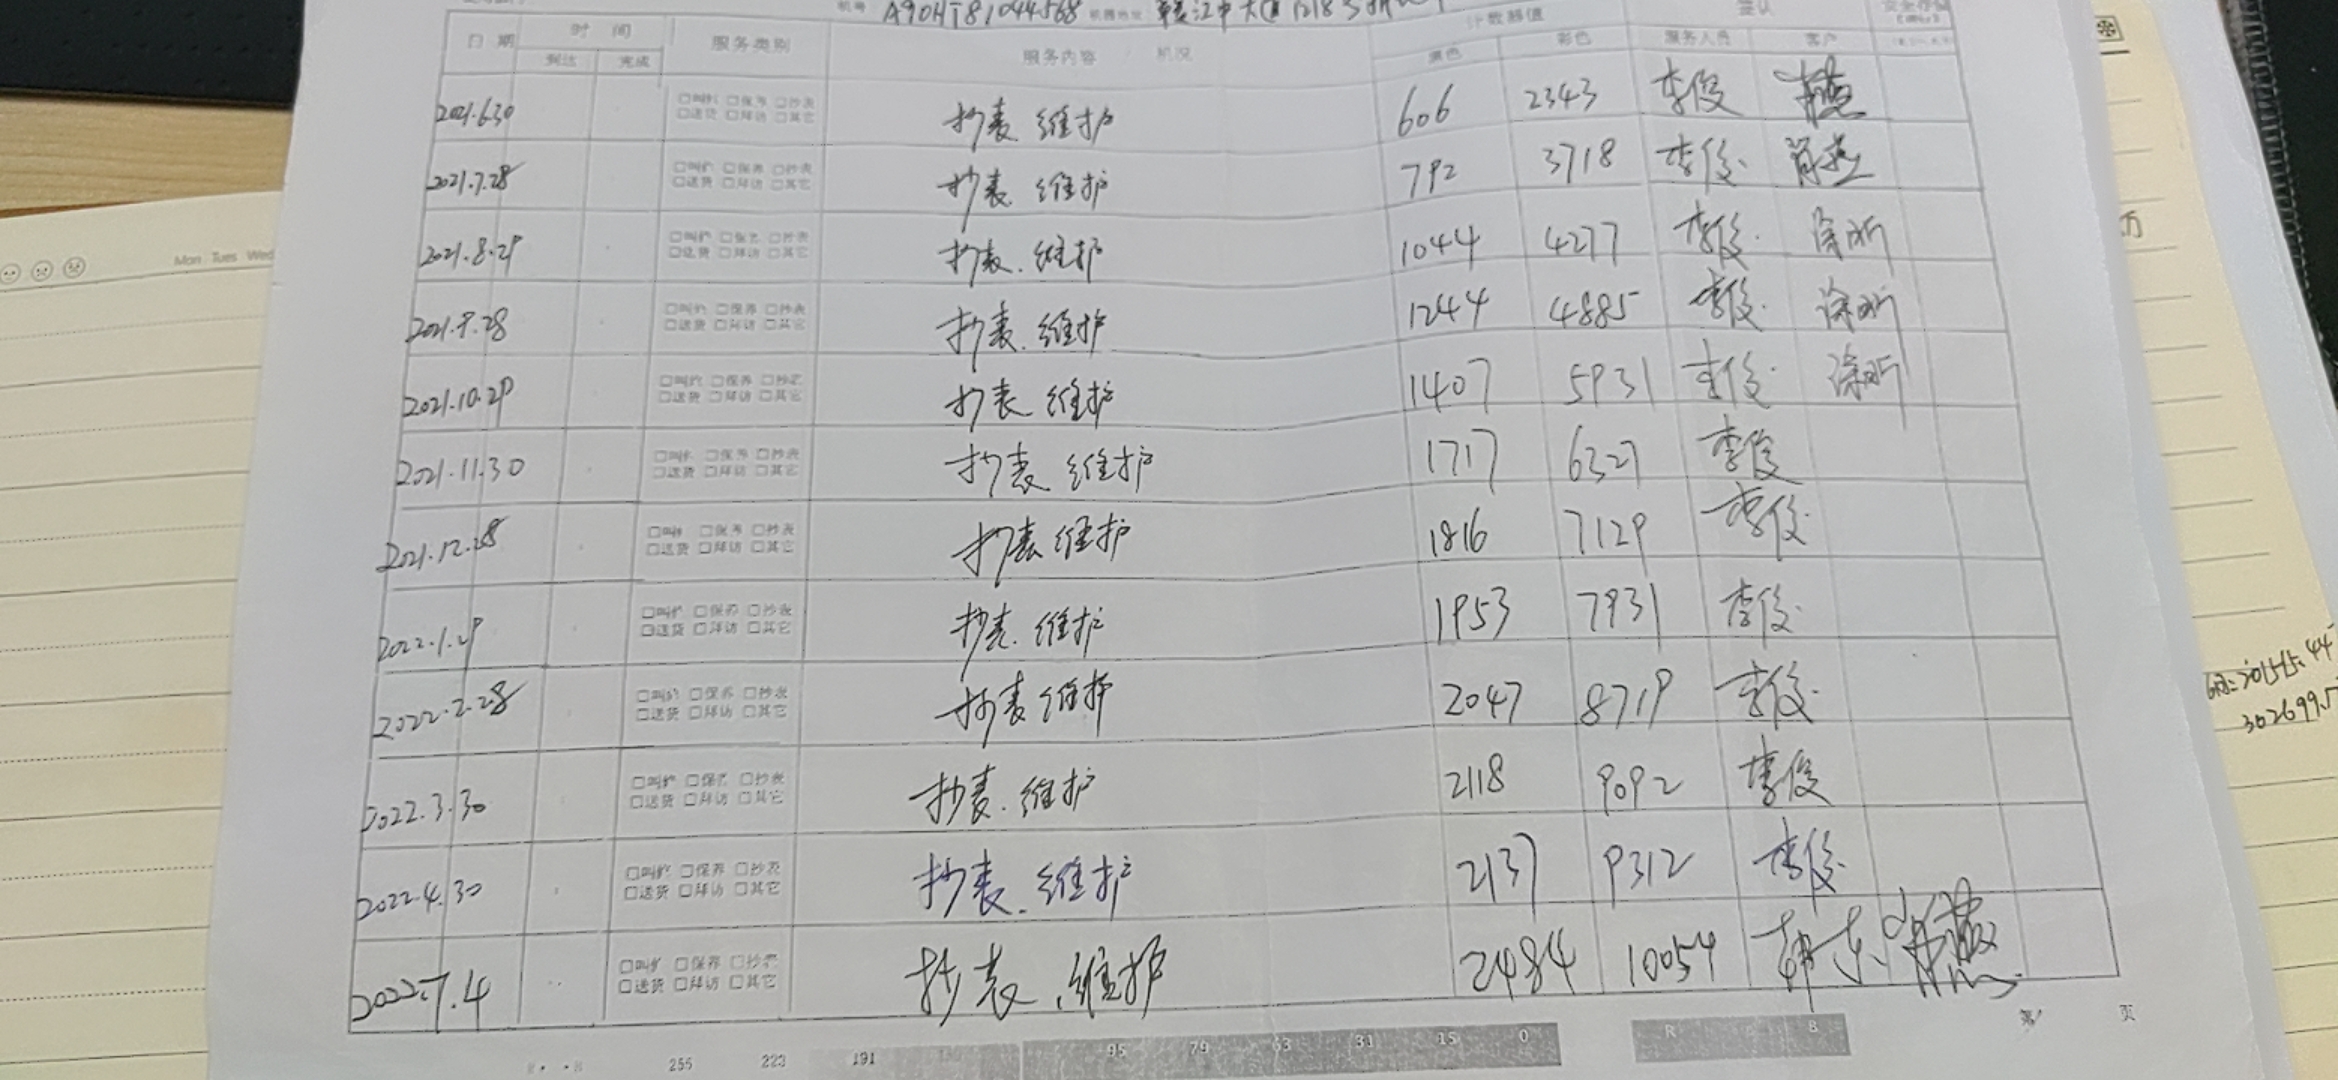 机号 A90HT81044568 机器地址
日期 时间 服务类别 服务内容 机况 计数器值 签认
到达 完成 黑色 彩色 服务人员 客户
2021.6.30 □保养 □抄表 抄表 维护 606 2343 李俊
□送货 □拜访 □其它
2021.7.28 □保养 □抄表 抄表 维护 792 3718 李俊. 肖燕
□送货 □拜访 □其它
2021.8.29 □抄表 抄表. 维护 1044 4277 李俊.
□送货 □拜访 □其它
2021.9.28 □保养 □抄表 抄表. 维护 1244 4885 李俊.
□送货 □拜访 □其它
2021.10.29 □保养 □抄表 抄表 维护 1407 5931 李俊.
□送货 □拜访 □其它
2021.11.30 □保养 □抄表 抄表 维护 1717 6327 李俊
□送货 □拜访 □其它
2021.12.28 □保养 □抄表 抄表 维护 1816 7129 李俊.
□送货 □拜访 □其它
2022.1.29 □保养 □抄表 抄表. 维护 1953 7931 李俊.
□送货 □拜访 □其它
2022.2.28 □保养 □抄表 抄表 维护 2047 8719 李俊.
□送货 □拜访 □其它
2022.3.30 □保养 □抄表 抄表. 维护 2118 9092 李俊
□送货 □拜访 □其它
2022.4.30 □保养 □抄表 抄表. 维护 2137 9312 李俊.
□送货 □拜访 □其它
2022.7.4 □保养 □抄表 抄表.维护 2484 10054
□送货 □拜访 □其它
第 页
255 223 191 95 79 63 31 15 0 R B
Mon Tues Wed
万